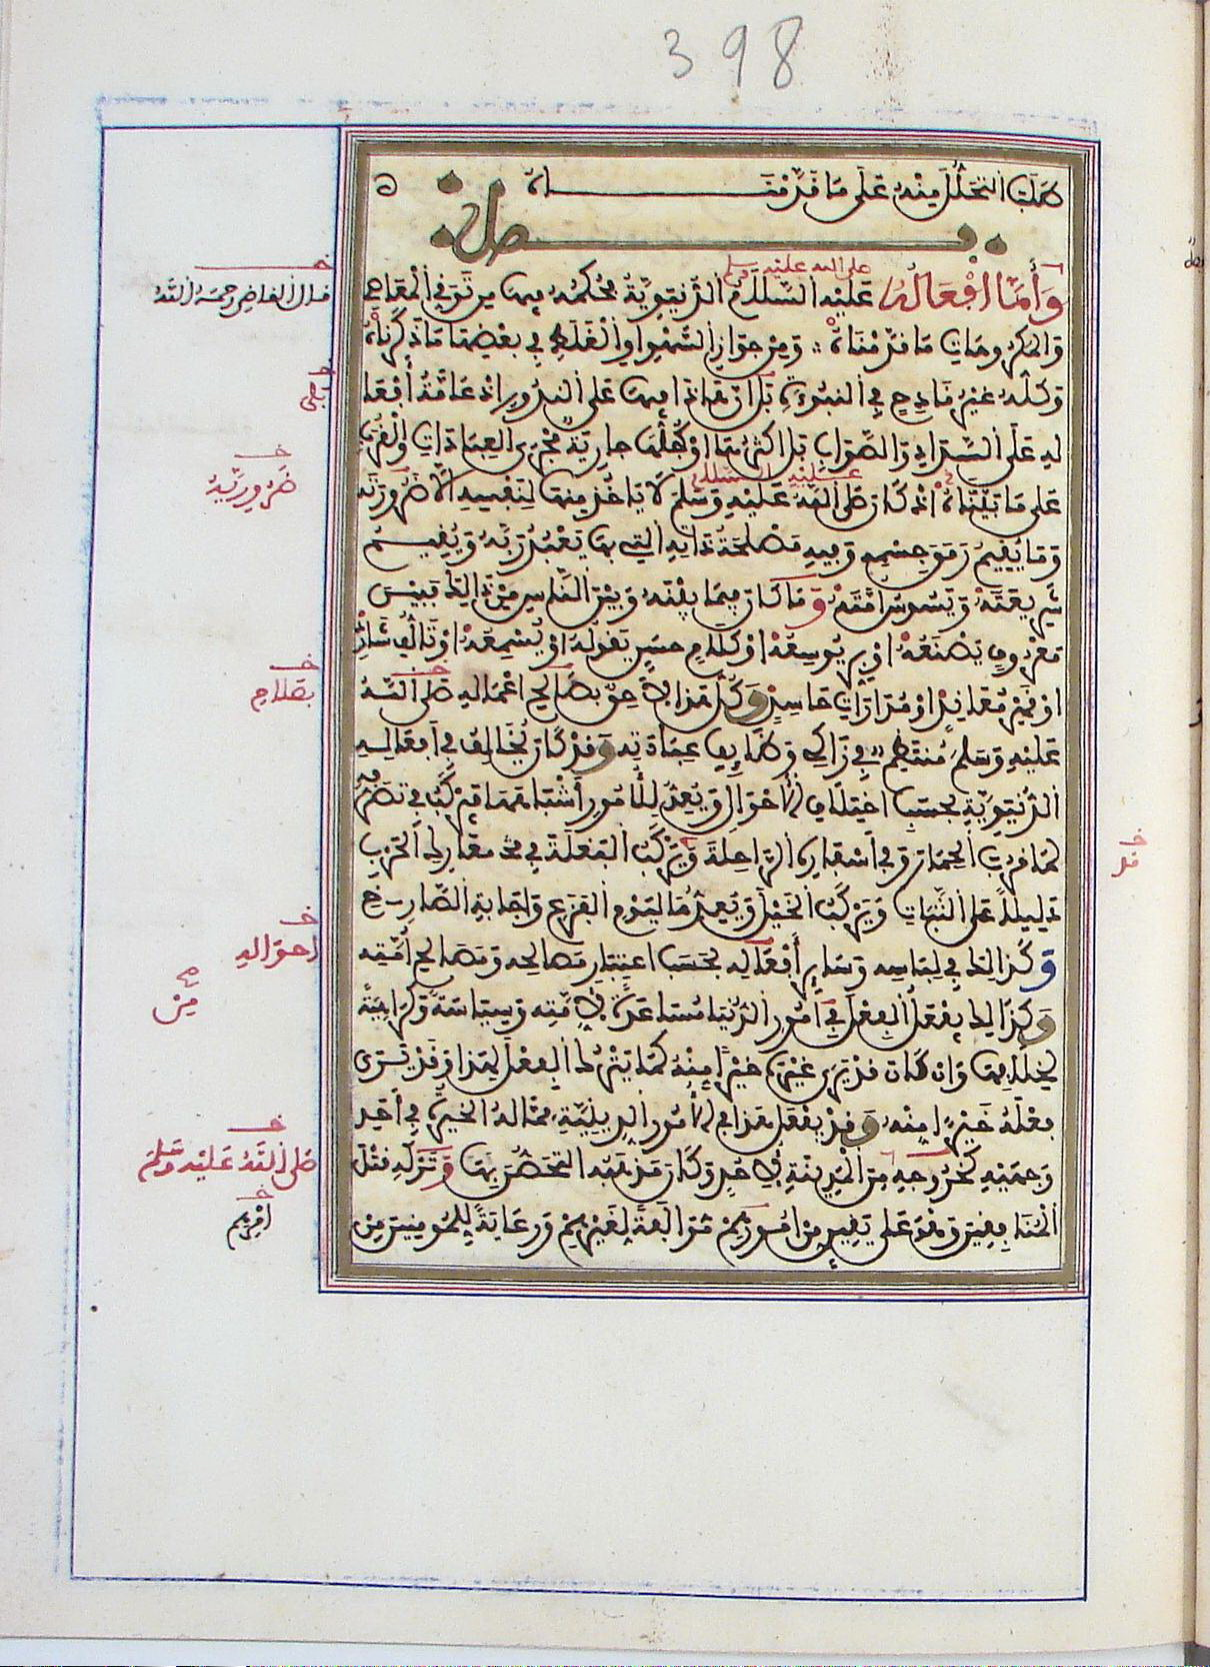 398
طلب التحلل منه على ما قدمناه
فصل
صلى الله عليه وسلم
وأما أفعاله عليه السلام الدنيوية فحكمه فيها من توقي المعاصي
والمكروهات ما قدمناه ومن جواز السهو أو الغلط في بعضها ما ذكرناه
وكله غير قادح في النبوة بل ان هذا فيها على الندور اذ عامة أفعا
له على السداد والصواب بل اكثرها أو كلها جارية مجرى العبادات والقرب
عليه السلام
على ما بيناه اذ كان صلى الله عليه وسلم لا ياخذ منها لنفسه الا ضرورته
وما يقيم رمق جسمه وفيه مصلحة ذاته التي بها يعبد ربه ويقيم
شريعته ويسوس امته وما كان فيما بينه وبين الناس من ذلك فبين
معروف يصنعه او بر يوسعه او كلام حسن يقوله او يسمعه او تالف شارد
او قهر معاند او مداراة حاسد وكل هذا لاحق بصالح اعماله صلى الله
عليه وسلم منتظم في زاكي وظائف عباداته وقد كان يخالف في أفعاله
الدنيوية بحسب اختلاف الأحوال ويعد للأمور أشباهها فيركب في تصرفه
لما قرب الحمار وفي أسفاره الراحلة ويركب البغلة في معارك الحرب
دليلا على الثبات ويركب الخيل ويعدها ليوم الفزع واجابة الصارخ
وكذلك في لباسه وساير أفعاله بحسب اعتبار مصالحه ومصالح أمته
وكذلك يفعل الفعل في أمور الدنيا مساعدة لأمته وسياسة وكراهية
لخلافها وان كان قد يرى غيره خيرا منه كما يترك الفعل لهذا وقد يرى
فعله خيرا منه وقد يفعل هذا في الأمور الدينية مما له الخيرة في أحد
وجهيه كخروجه من المدينة لأحد وكان مذهبه التحصن بها وتركه قتل
المنافقين وهو على يقين من امورهم مؤالفة لغيرهم ورعاية للمومنين من
خ
قال القاضي رحمه الله
خ
بلى
خ
ضرورية
خ
بصلاح
خ
قد
خ
احواله
صح
من
خ
صلى الله عليه وسلم
خ
امرهم